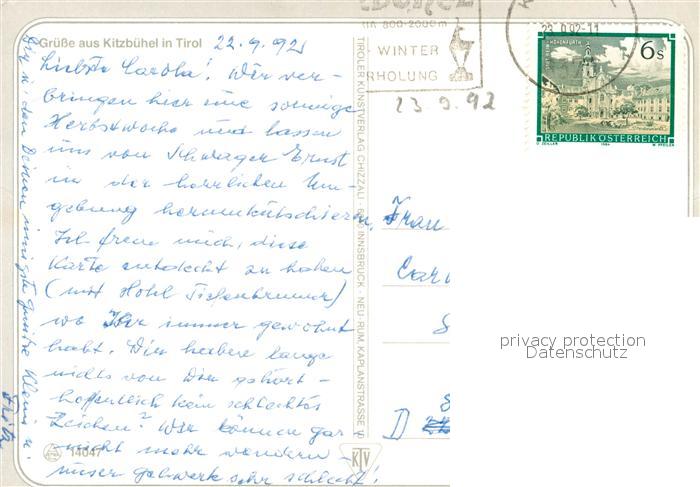 Grüße aus Kitzbühel in Tirol 22.9.92
Liebste Carola! Wir ver-
bringen hier eine sonnige
Herbstwoche und lassen
uns von Schwager Ernst
in der herrlichen Um-
gebung herumkutschieren.
Ich freue mich, diese
Karte entdeckt zu haben
(mit Hotel Tiefenbrunner)
wo Ihr immer gewohnt
habt. Wir haben lange
nichts von Dir gehört -
hoffentlich kein schlechtes
Zeichen? Wir können gar
nicht mehr wandern -
unser Gehwerk sehr schlecht!
Dir u. den Deinen innigste Grüße
u.
Fritz
14047
TIROLER KUNSTVERLAG CHIZZALI · INNSBRUCK - NEU-RUM, KAPLANSTRASSE
KTV
800-2000m
WINTER
RHOLUNG
-9.92-11
23.9.92
6s
REPUBLIK ÖSTERREICH
O. ZEILLER 1984 W. PFEILER
Frau
Car
S
S
D
privacy protection
Datenschutz